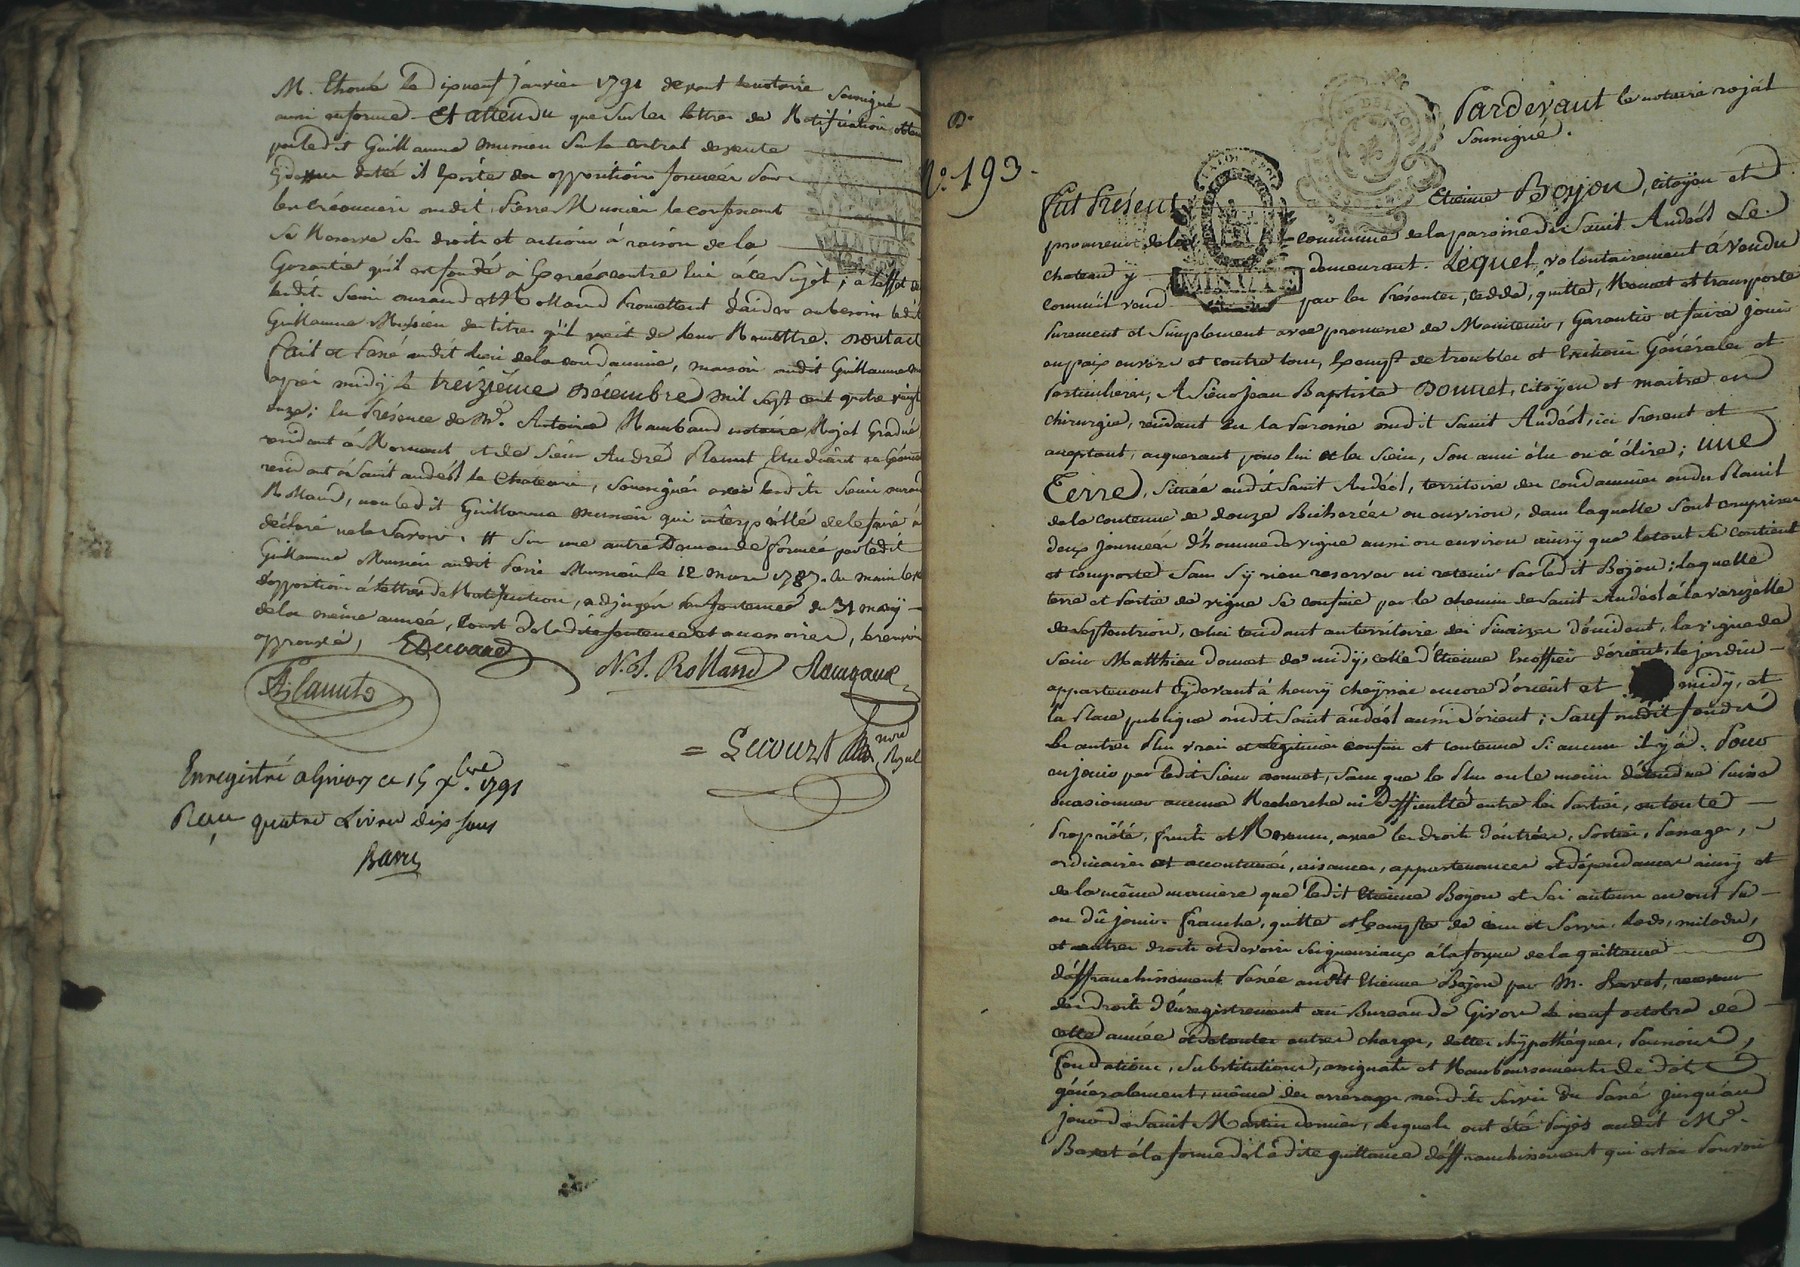 M. Thomé le dixneuf janvier 1791 devant le notaire soussigné
aussi en forme. Et attendu que sur les lettres de Ratification obten
par ledit Guillaume sur le contrat de vente
datté il existe des oppositions formées par
les créanciers dudit Pierre le confessant
se Reserve ses droits et actions à raison de la
Garantie qu'il est fondé à Exercer contre lui à ce sujet; à l'effet de
lesdits Sieurs et Rolland Promettent d'aider au besoin ledit
Guillaume des titres qu'il vient de leur Remettre. dont acte
fait et Passé audit lieu de la condamine, maison dudit Guillaume
après midy le treizième Décembre mil sept cent quatre vingt
onze; En Présence de Me. Antoine Rambaud notaire Royal Gradué
residant à Mornant et de Sieur André Flamut Etudiant en
residant à Saint andéol le Chateau, soussignés avec lesdits Sieurs
Rolland, non ledit Guillaume qui interpellé de le faire a
déclaré ne le Savoir. # Sur une autre Demande formée par ledit
Guillaume audit Pierre le 12 mars 1787. en main levée
d'opposition à lettres de Ratification, adjugés par sentence du 31 may
de la même année, Cout de ladite sentence et accessoires, le renvoi
approuvé,
N. J. Rolland Rambaud
Flamut
= Lecourt nre Royal
Enregistré a Givors ce 15 Xbre 1791
Reçu quatre Livres Dix sous
Barret
No. 193.
Pardevant le notaire royal
soussigné.
MINUTE
Fut Présent Etienne Bojon, citoyen et
procureur de la commune de la paroisse de Saint Andéol Le
chateau y demeurant. Lequel, volontairement à vendu
comm'il vend par les Présentes, cedde, quitte, Remet et transporte
Purement et Simplement avec promesse de Maintenir, Garantir et faire jouir
en paix envers et contre tous, Exempt de troubles et Evictions Générales et
Particulieres, A Sieur Jean Baptiste Donnet, citoyen et maitre en
chirurgie, residant en la Paroisse dudit Saint Andéol, ici Present et
acceptant, acquerant pour lui et les Siens, son ami élu ou à élire; une
Terre, située audit Saint Andéol, territoire des condamines ou du Planil
de la contenue de douze Bicherées ou environ, dans laquelle Sont comprises
deux journées d'homme de vigne aussi ou environ ainsy que letout se Contient
et comporte, sans s'y rien reserver ni retenir Par ledit Bojon; laquelle
terre et Partie de vigne se confine par le chemin de Saint Andéol à la varizelle
de septentrion, celui tendant au territoire des d'occident, la vigne de
Sieur Matthieu Donnet de midy, celle d'Etienne Escoffier d'orient, le jardin
appartenant cydevant à henry Cheyssac encore d'orient et midy, et
la Place publique dudit Saint andéol aussi d'orient; Sauf audit fonds
les autres Plus vrais et Légitimes confins et contenue Si aucuns il y à. Pour
en jouir par ledit Sieur Donnet, sans que le Plus ou le moins d'étendue Puisse
occasionner aucune Recherche ni Difficulté entre les Parties, en toute
Propriété, fruits et Revenus, avec les droits d'entrées, sorties, Passages,
ordinaires et accoutumés, aisances, appartenances et dépendances ainsy et
de la même maniere que ledit Etienne Bojon et Ses auteurs en ont Pu
ou dû jouir. Franche, quitte et Exempte de cens et Servis, Lods, milods,
et autres droits et devoirs Seigneuriaux à la forme de la quittance
d'affranchissement Passée audit Etienne Bojon par M. Barret, receveur
des droits d'Enregistrement au Bureau de Givors le neuf octobre de
cette année et de toutes autres charges, dettes, hypothéques, Pensions,
Fondations, Substitutions, assignats et Remboursements de dots
généralement, même des arrérages desdits Servis du Passé jusqu'au
jour de Saint Martin dernier, lesquels ont été Payés audit Mr.
Barret à la forme de ladite quittance d'affranchissement qui